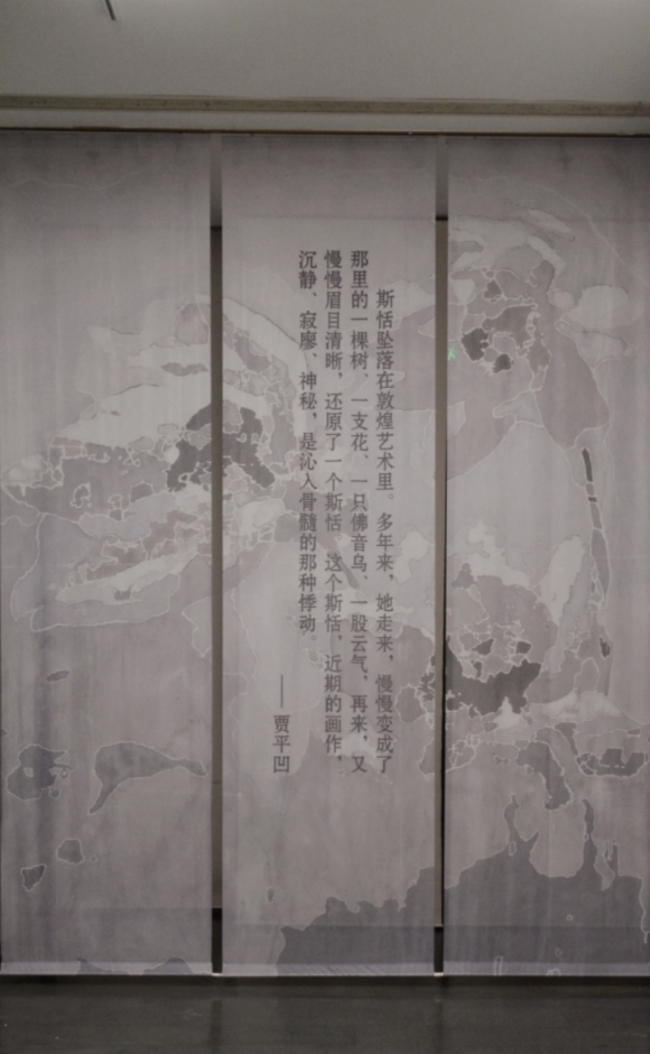 斯恬坠落在敦煌艺术里。多年来，她走来，慢慢变成了
那里的一棵树、一支花、一只佛音鸟、一股云气，再来，又
慢慢眉目清晰，还原了一个斯恬。这个斯恬，近期的画作，
沉静、寂廖、神秘，是沁入骨髓的那种悸动。
——贾平凹